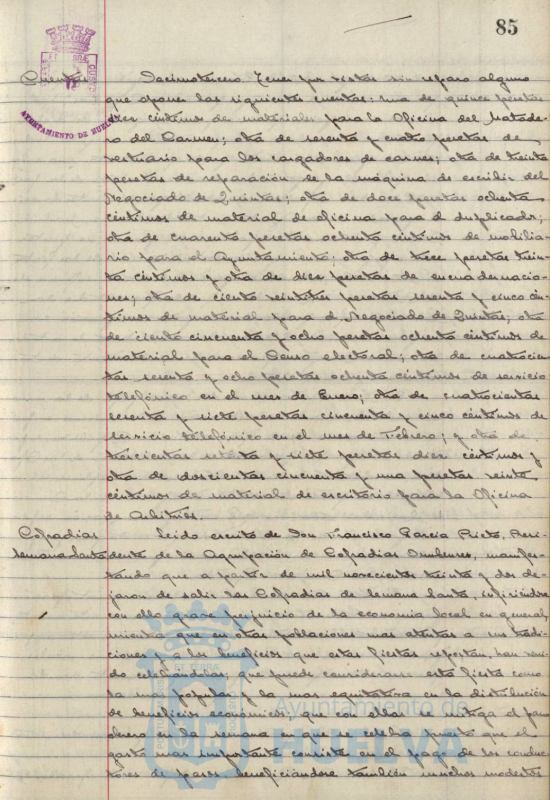 85
AYUNTAMIENTO DE HUELVA
Cuentas
Decimotercero. Tener por vistas sin reparo alguno
que oponer las siguientes cuentas: una de quince pesetas
diez céntimos de materiales para la Oficina del Matade-
ro del Carmen; otra de sesenta y cuatro pesetas de
vestuario para los cargadores de carnes; otra de treinta
pesetas de reparación de la máquina de escribir del
Negociado de Quintas; otra de doce pesetas ochenta
céntimos de material de oficina para el duplicador;
otra de cuarenta pesetas ochenta céntimos de mobilia-
rio para el Ayuntamiento; otra de trece pesetas trein-
ta céntimos y otra de diez pesetas de encuadernacio-
nes; otra de ciento veintitres pesetas sesenta y cinco cén-
timos de material para el Negociado de Quintas; otra
de ciento cincuenta y ocho pesetas ochenta céntimos de
material para el Censo electoral; otra de cuatrocien-
tas sesenta y ocho pesetas ochenta céntimos de servicio
telefónico en el mes de Enero; otra de cuatrocientas
sesenta y siete pesetas cincuenta y cinco céntimos de
servicio telefónico en el mes de Febrero; y otra de
trescientas setenta y siete pesetas diez céntimos y
otra de doscientas cincuenta y una pesetas veinte
céntimos de material de escritorio para la Oficina
de Arbitrios.
Cofradias
Semana Santa
Leido escrito de Don Francisco García Prieto, Presi-
dente de la Agrupación de Cofradias Onubenses, manifes-
tando que a partir de mil novecientos treinta y dos de-
jaron de salir las Cofradias de Semana Santa, infiriéndose
con ello grave perjuicio de la economia local en general,
mientras que en otras poblaciones mas atentas a sus tradi-
ciones y a los beneficios que estas fiestas reportan, han veni-
do celebrandolas; que puede considerarse esta fiesta como
la mas popular y la mas equitativa en la distribución
de beneficios económicos, que con ellas se mitiga el paro
obrero en la semana en que se celebra puesto que el
gasto mas importante consiste en el pago de los conduc-
tores de pasos beneficiándose también muchos modestos
Ayuntamiento de
HUELVA